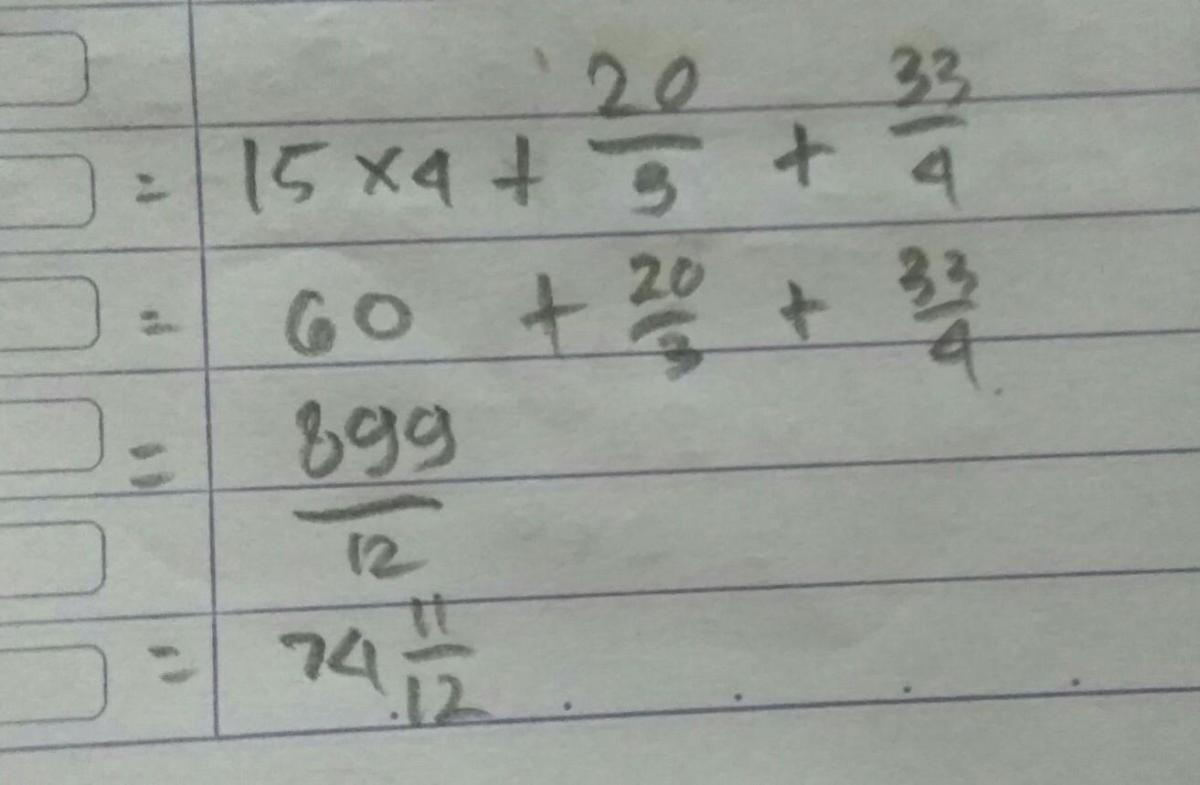 = 15 × 4 + 20/3 + 33/4
= 60 + 20/3 + 33/4
= 899/12
= 74 11/12